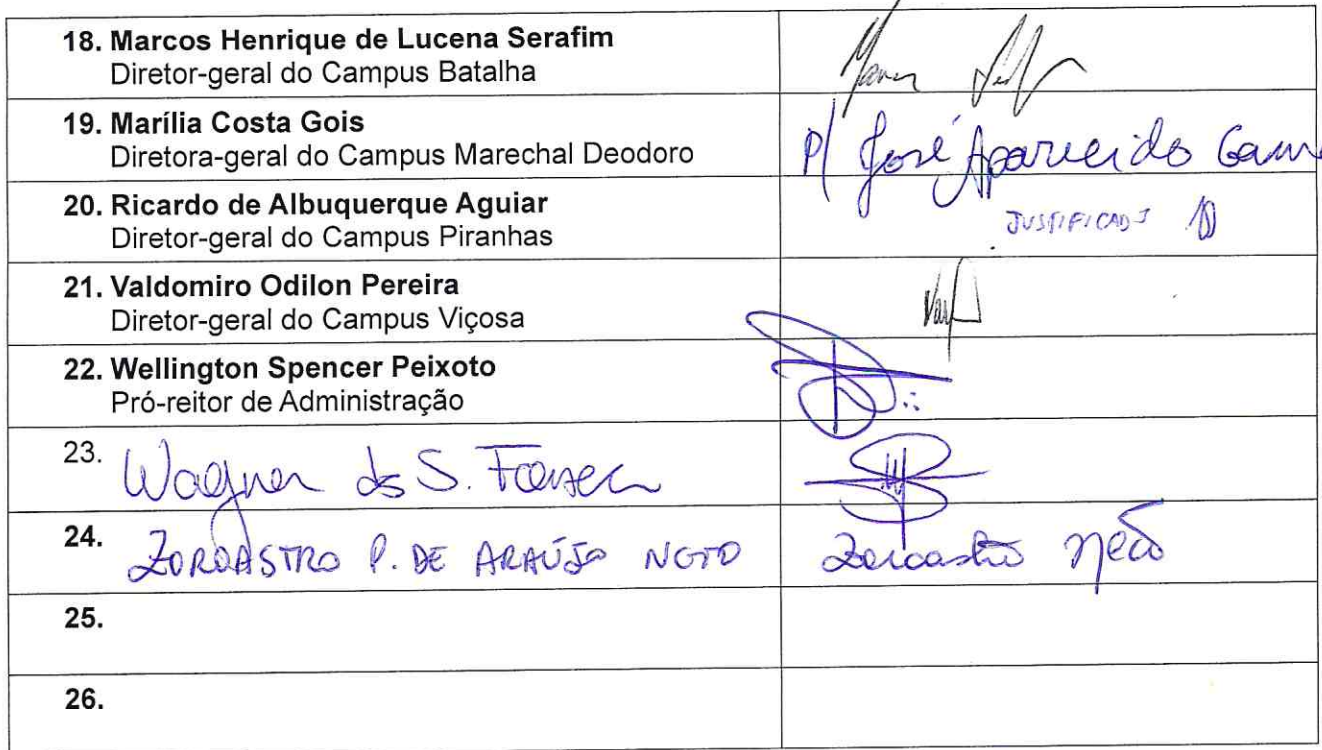 18. Marcos Henrique de Lucena Serafim
Diretor-geral do Campus Batalha
19. Marília Costa Gois
Diretora-geral do Campus Marechal Deodoro
P/ José Aparecido Gam
20. Ricardo de Albuquerque Aguiar
Diretor-geral do Campus Piranhas
JUSTIFICADO
21. Valdomiro Odilon Pereira
Diretor-geral do Campus Viçosa
22. Wellington Spencer Peixoto
Pró-reitor de Administração
23. Wagner dos S. Fonseca
24. ZOROASTRO P. DE ARAÚJO NETO Zoroastro Neto
25.
26.